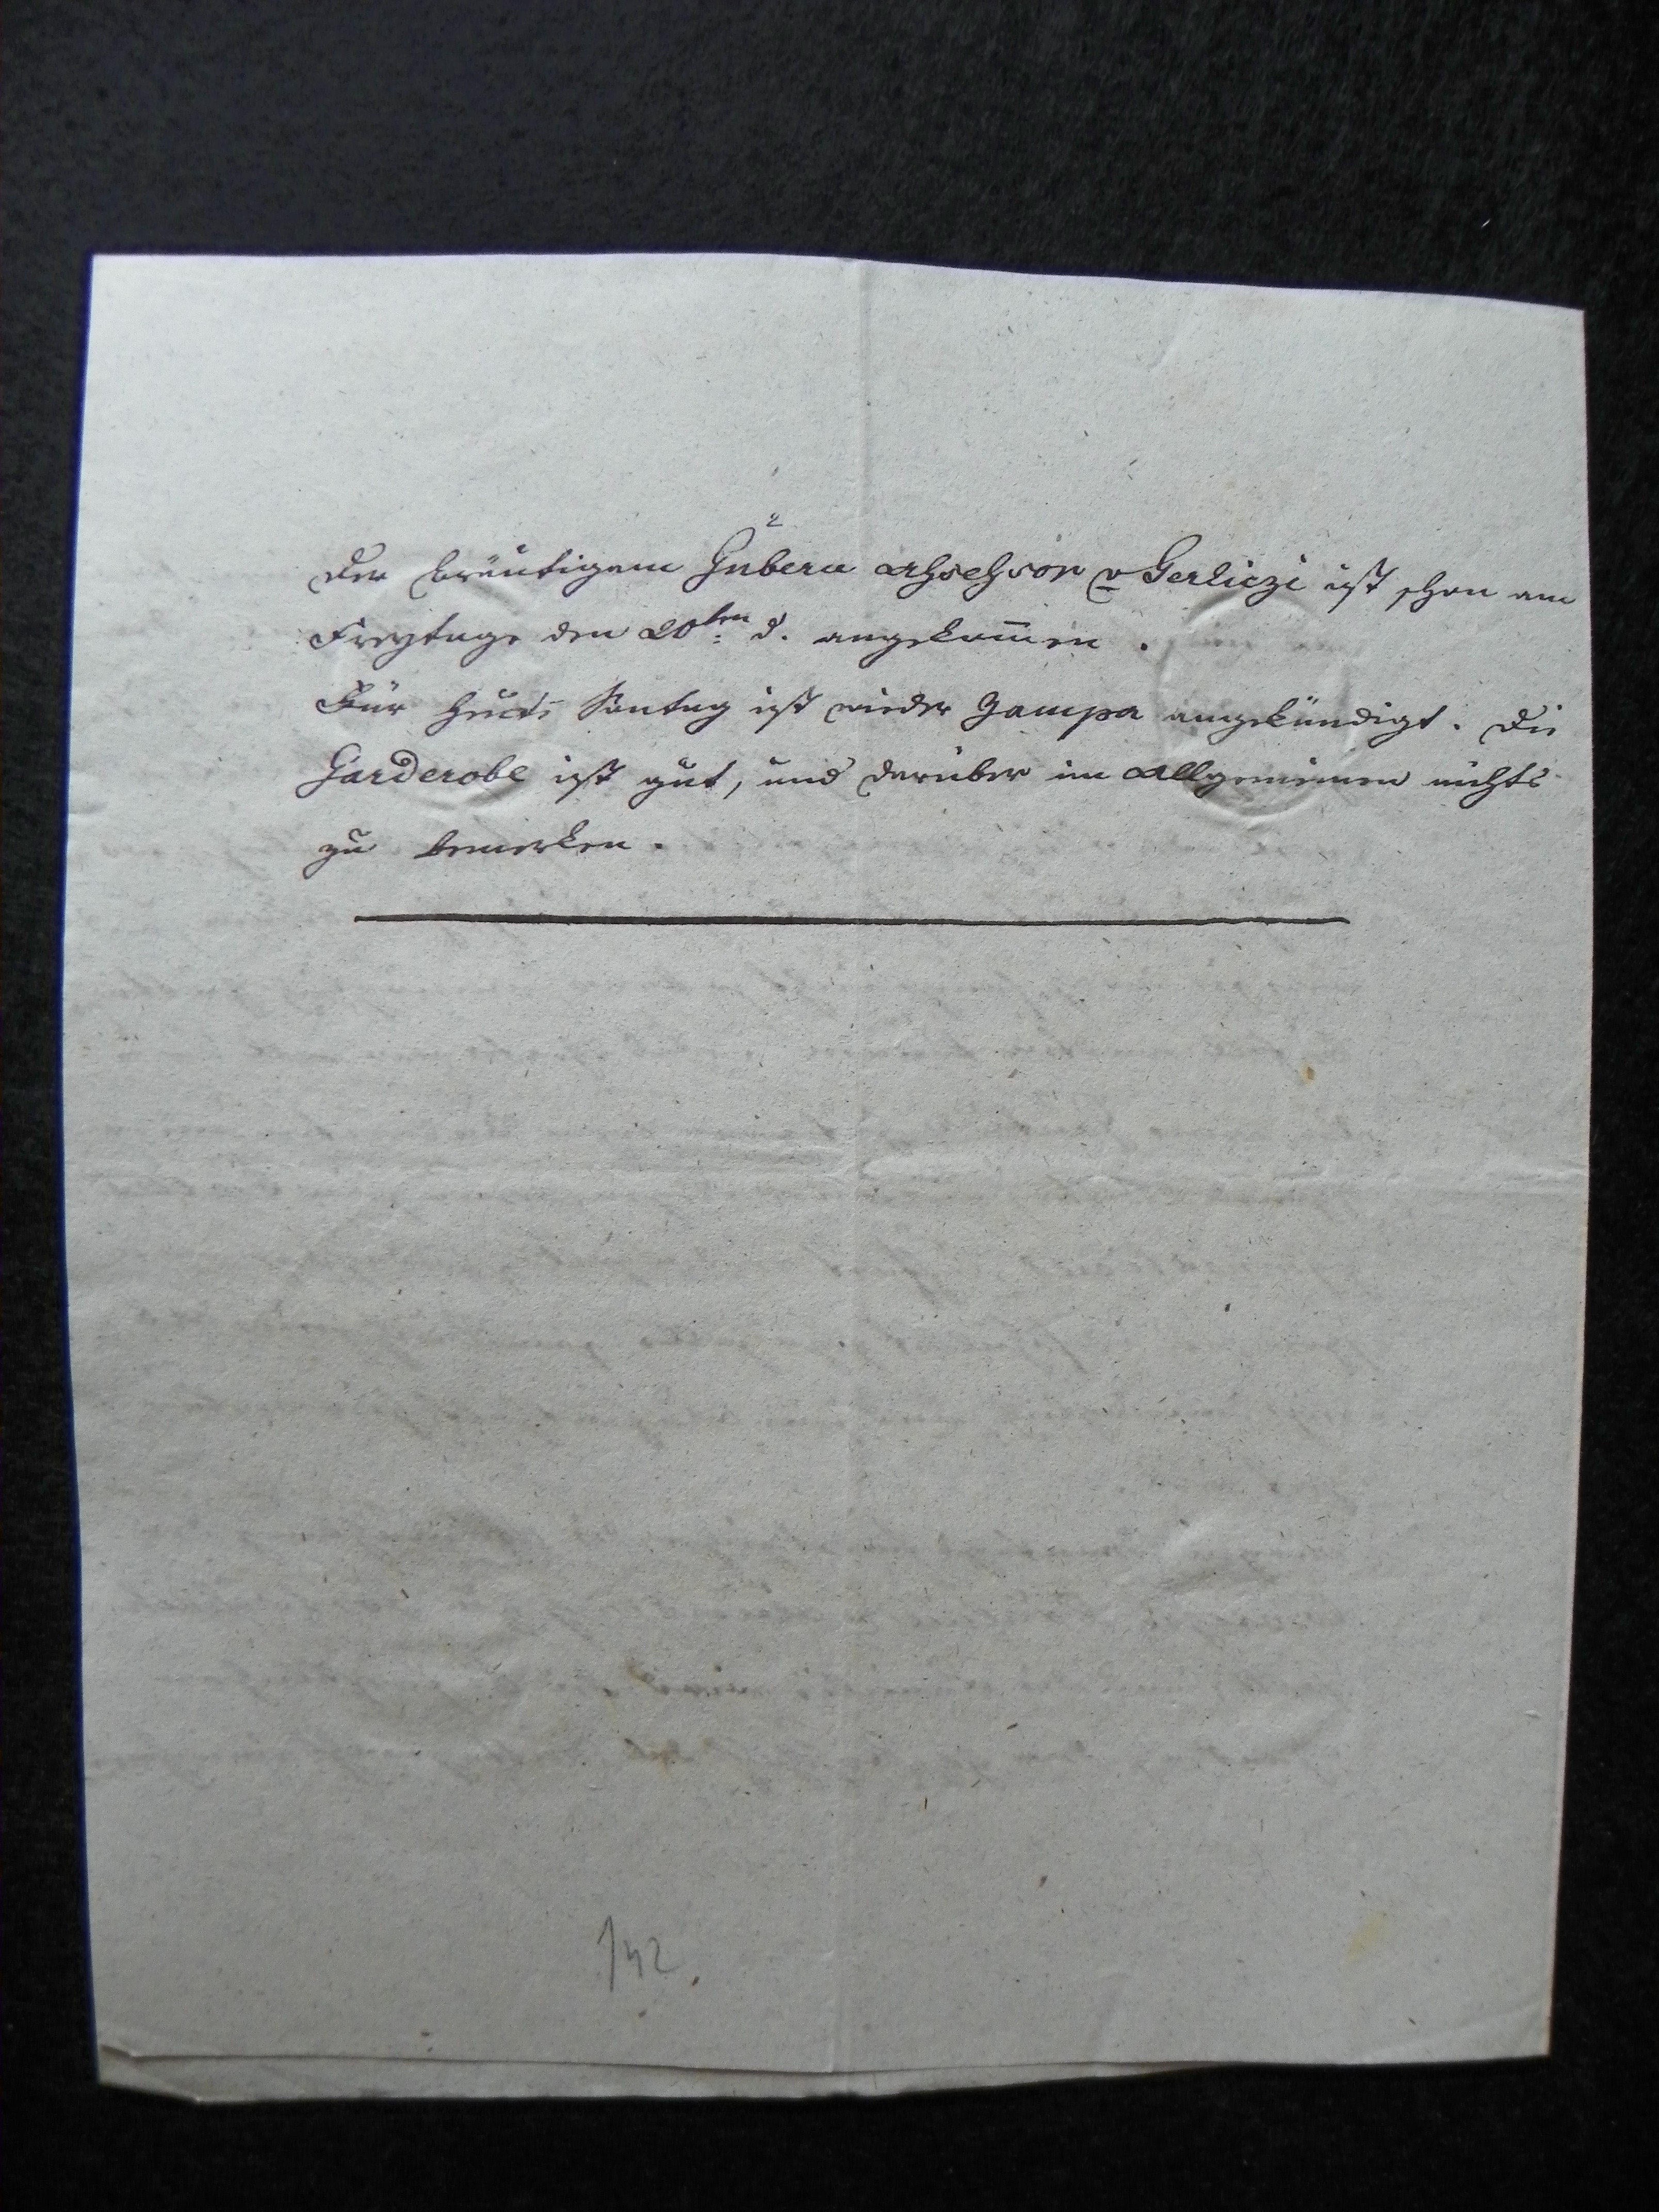 Der Bräutigam Gubern Assessor v Gerliczi ist schon am
Freytage den 20ten d. angekom̅en.
Für heute Sontag ist wieder Zampa angekündigt. Die
Garderobe ist gut, und darüber im Allgemeinen nichts
zu bemerken.
142.